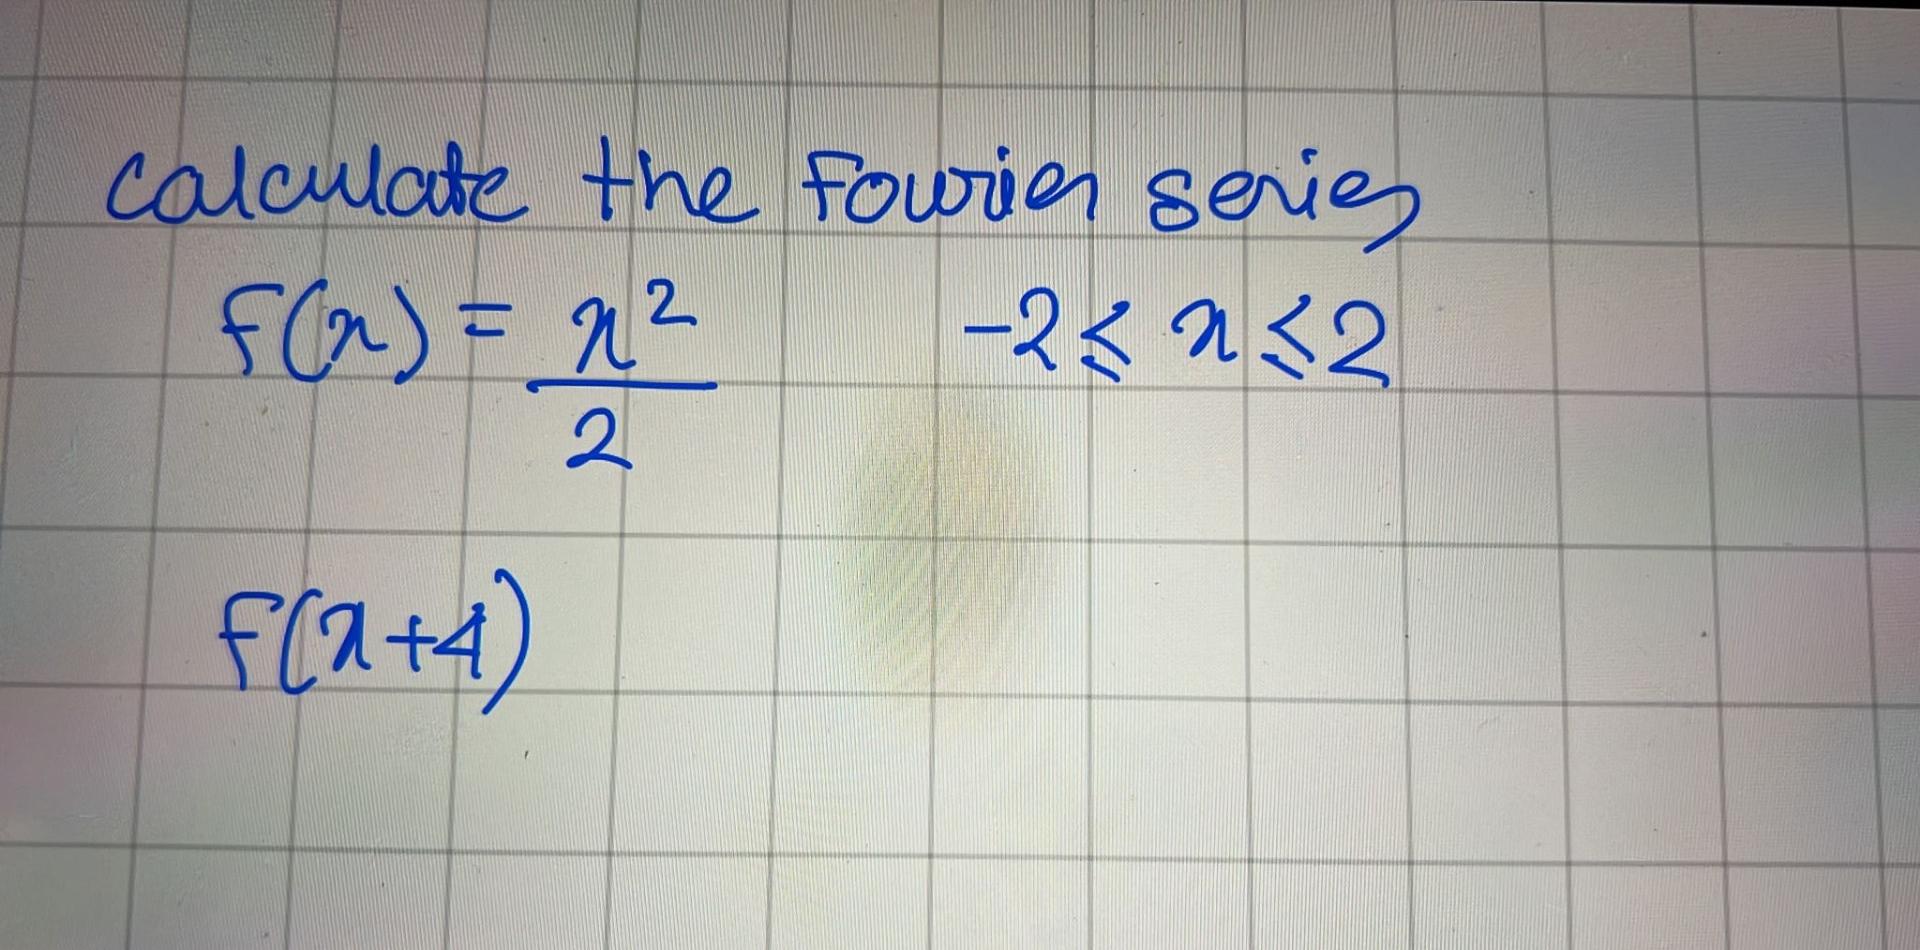 calculate the fourier series
f(x) = x²/2 -2 ≤ x ≤ 2
f(x+4)